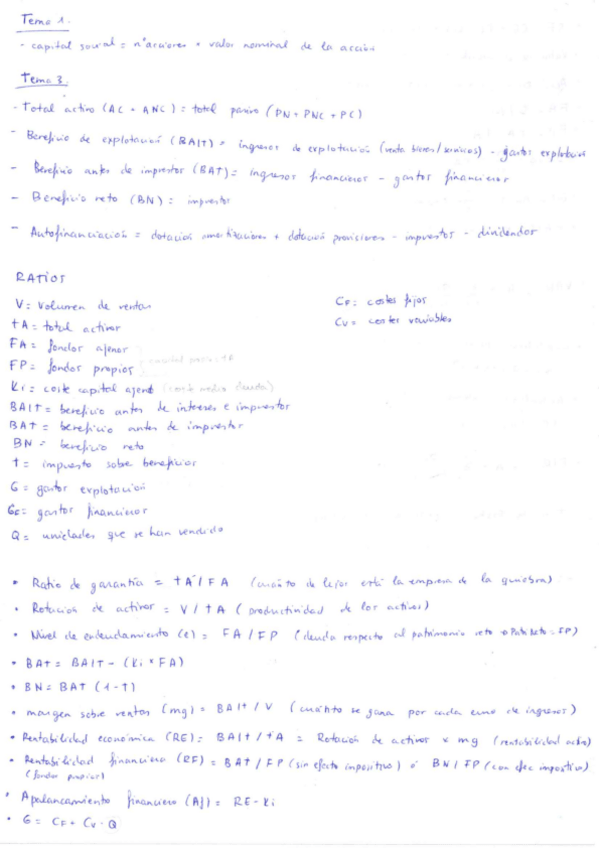 Tema 1.
- capital social = nº acciones * valor nominal de la acción
Tema 3.
- Total activo (AC + ANC) = total pasivo (PN + PNC + PC)
- Beneficio de explotación (BAIT) = ingresos de explotación (venta bienes/servicios) - gastos explotación
- Beneficio antes de impuestos (BAT) = ingresos financieros - gastos financieros
- Beneficio neto (BN) = impuestos
- Autofinanciación = dotación amortizaciones + dotación provisiones - impuestos - dividendos
RATIOS
V = Volumen de ventas
CF = costes fijos
tA = total activos
CV = costes variables
FA = fondos ajenos
FP = fondos propios
Ki = coste capital ajeno (coste medio deuda)
BAIT = beneficio antes de intereses e impuestos
BAT = beneficio antes de impuestos
BN = beneficio neto
t = impuesto sobre beneficios
G = gastos explotación
GF = gastos financieros
Q = unidades que se han vendido
• Ratio de garantía = tA / FA (cuánto de lejos está la empresa de la quiebra)
• Rotación de activos = V / tA (productividad de los activos)
• Nivel de endeudamiento (e) = FA / FP (deuda respecto al patrimonio neto → Patr. Neto = FP)
• BAt = BAIT - (Ki * FA)
• BN = BAT (1 - t)
• margen sobre ventas (mg) = BAIt / V (cuánto se gana por cada euro de ingresos)
• Rentabilidad económica (RE) = BAIt / tA = Rotación de activos x mg (rentabilidad activo)
• Rentabilidad financiera (RF) = BAT / FP (sin efecto impositivo) ó BN / FP (con efec impositivo)
(fondos propios)
• Apalancamiento financiero (Af) = RE - Ki
• G = CF + CV · Q